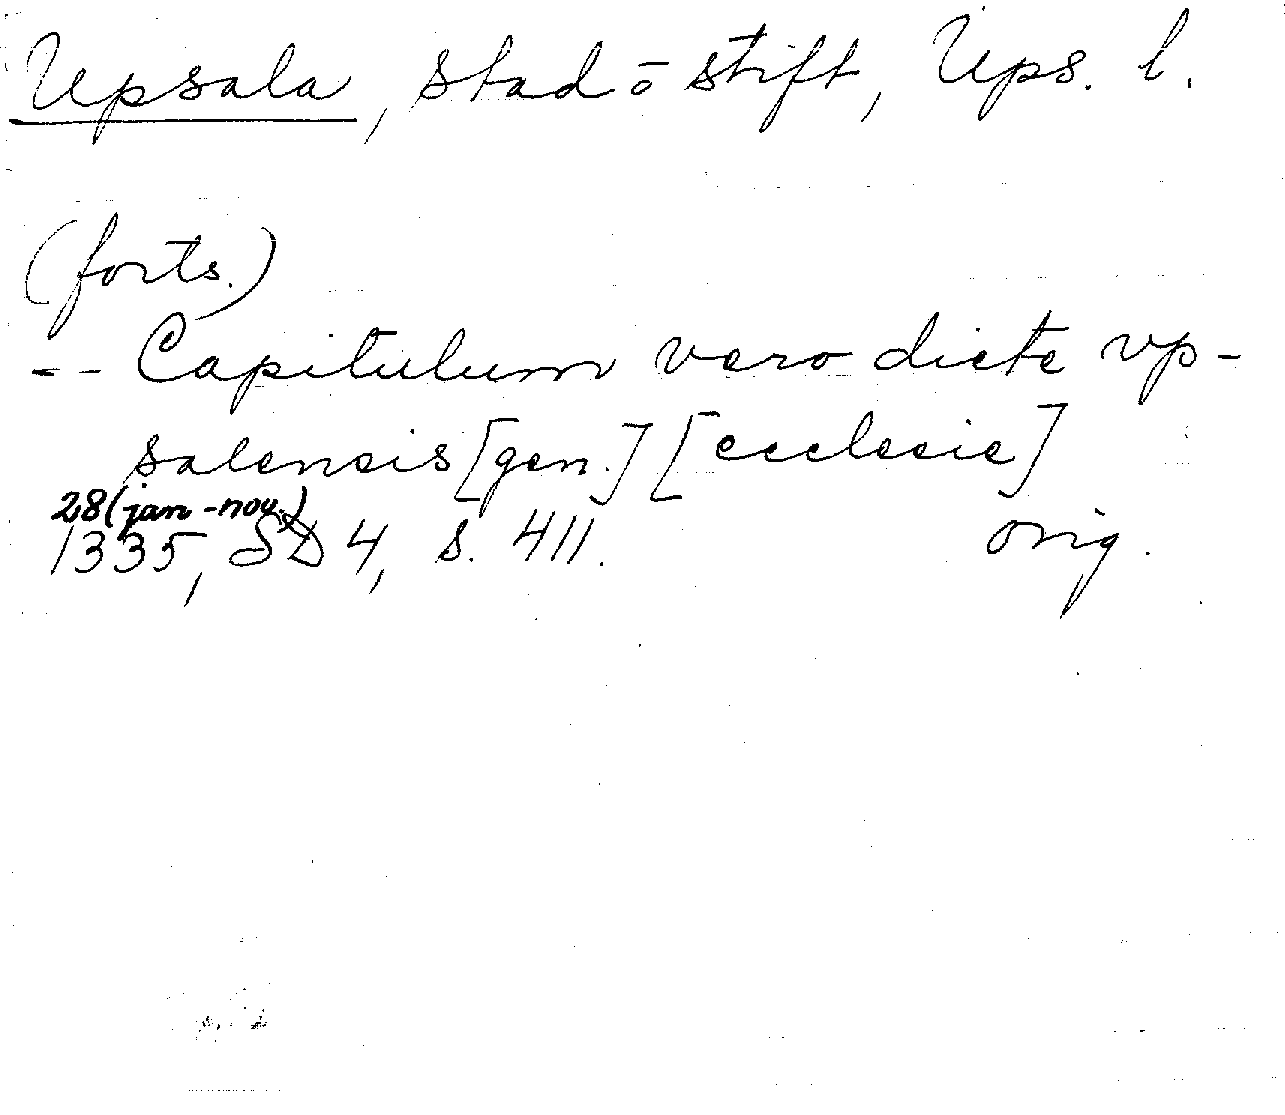 Upsala, stad o stift, Ups. l.
(forts.)
-- Capitulum vero dicte vp-
salensis [gen.] [ecclesie]
28 (jan-nov.)
1335, SD 4, s. 411. orig.